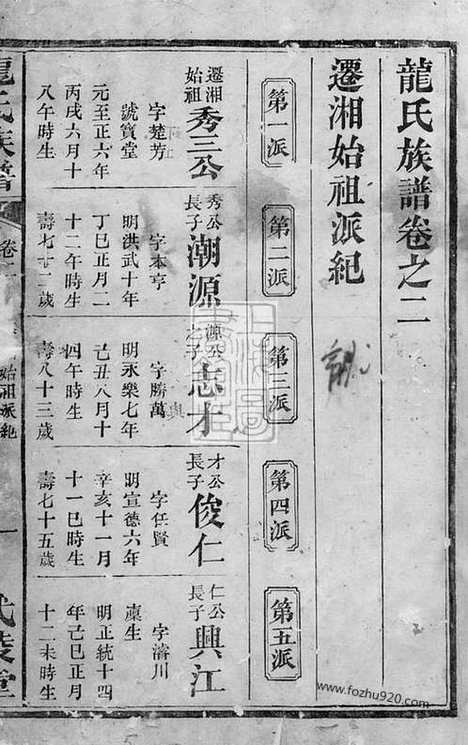 龍氏族譜卷之二
遷湘始祖派紀
第一派
第二派
第三派
第四派
第五派
遷湘始祖秀三公
字楚芳
號寶堂
元至正六年
丙戌六月十
八午時生
秀公長子潮源
字本亨
明洪武十年
丁巳正月二
十二午時生
壽七十二歲
源公之子志才
字勝萬
明永樂七年
己丑八月十
四午時生
壽八十三歲
才公長子俊仁
字任賢
明宣德六年
辛亥十一月
十一巳時生
壽七十五歲
仁公長子興江
字濬川
稟生
明正統十四
年己巳正月
十二未時生
龍氏族譜
始湘派紀
一
武陵堂
www.fozhu920.com